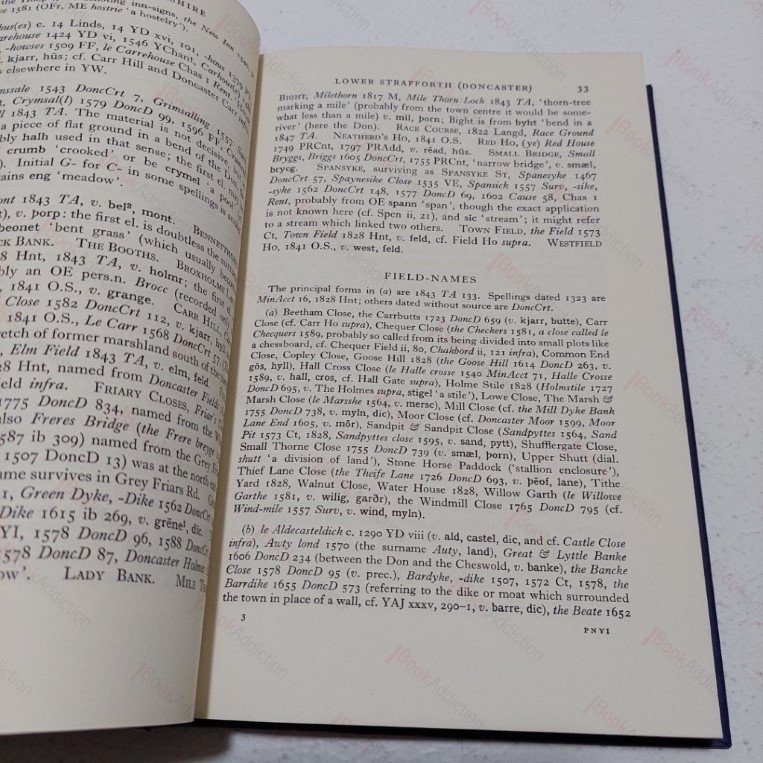 SHIRE
inn-signs, the New Inn
1581 (OFr, ME hostrie 'a hostelry').
hus(es) c. 14 Linds, 14 YD xvi, 101, -hous
arehouse 1424 YD vi, 1546 YChant,
-howses 1509 FF, le Carrehouse Chas 1
kjarr, hūs; cf. Carr Hill and Doncaster Carr
s elsewhere in YW.
mssale 1543 DoncCrt 7, Grimsalling 1557
t, Crymsal(l) 1579 DoncD 99, 1596 FF,
ll 1843 TA. The material is not decisive
a piece of flat ground in a bend of the
bly halh used in that sense; the first el.
crumb 'crooked' or be crymel 'a pool'
). Initial G- for C- in some spellings is
ains eng 'meadow'.
ont 1843 TA, v. bel², mont. BENNETTHORPE
), v. þorp: the first el. is doubtless the
beonet 'bent grass' (which usually
CK BANK. THE BOOTHS. BROXHOLME
8 Hnt, 1843 TA, v. holmr; the first
bly an OE pers.n. Brocc (recorded
, 1841 O.S., v. grange. CARR HILL,
Close 1582 DoncCrt 112, v. kjarr,
1841 O.S., Le Carr 1568 DoncCrt 57
etch of former marshland south of the
, Elm Field 1843 TA, v. elm, feld
8 Hnt, named from Doncaster Field
ield infra. FRIARY CLOSES, Friar's
1775 DoncD 834, named from the
also Freres Bridge (the Frere brigge
587 ib 309) named from the Grey
1507 DoncD 13) was at the north
ame survives in Grey Friars Rd.
1, Green Dyke, -Dike 1562 DoncCrt
Dike 1615 ib 269, v. grēne¹, dic.
YI, 1578 DoncD 96, 1588 DoncCrt
1578 DoncD 87, Doncaster Holmes
ow'. LADY BANK. MILE
LOWER STRAFFORTH (DONCASTER) 33
BIGHT, Milethorn 1817 M, Mile Thorn Lock 1843 TA, 'thorn-tree
marking a mile' (probably from the town centre it would be some-
what less than a mile) v. mīl, þorn; Bight is from byht 'bend in a
river' (here the Don). RACE COURSE, 1822 Langd, Race Ground
1847 TA. NEATHERD'S HO, 1841 O.S. RED HO, (ye) Red House
1749 PRCnt, 1797 PRAdd, v. rēad, hūs. SMALL BRIDGE, Small
Bryggs, Briggs 1605 DoncCrt, 1755 PRCnt, 'narrow bridge', v. smæl,
brycg. SPANSYKE, surviving as SPANSYKE ST, Spanesyke 1467
DoncCrt 57, Spaynesike Close 1535 VE, Spansick 1557 Surv, -sike,
-syke 1562 DoncCrt 148, 1577 DoncD 69, 1602 Cause 58, Chas 1
Rent, probably from OE spann 'span', though the exact application
is not known here (cf. Spen ii, 21), and sīc 'stream'; it might refer
to a stream which linked two others. TOWN FIELD, the Field 1573
Ct, Town Field 1828 Hnt, v. feld, cf. Field Ho supra. WESTFIELD
HO, 1841 O.S., v. west, feld.
FIELD-NAMES
The principal forms in (a) are 1843 TA 133. Spellings dated 1323 are
MinAct 16, 1828 Hnt; others dated without source are DoncCrt.
(a) Beetham Close, the Carrbutts 1723 DoncD 659 (v. kjarr, butte), Carr
Close (cf. Carr Ho supra), Chequer Close (the Checkers 1581, a close called le
Checquers 1589, probably so called from its being divided into small plots like
a chessboard, cf. Chequer Field ii, 80, Chakbord ii, 121 infra), Common End
Close, Copley Close, Goose Hill 1828 (the Goose Hill 1614 DoncD 263, v.
gōs, hyll), Hall Cross Close (le Halle crosse 1540 MinAct 71, Halle Crosse
1589, v. hall, cros, cf. Hall Gate supra), Holme Stile 1828 (Holmstile 1727
DoncD 695, v. The Holmes supra, stigel 'a stile'), Lowe Close, The Marsh &
Marsh Close (le Marsshe 1564, v. mersc), Mill Close (cf. the Mill Dyke Bank
1755 DoncD 738, v. myln, dic), Moor Close (cf. Doncaster Moor 1599, Moor
Lane End 1605, v. mōr), Sandpit & Sandpit Close (Sandpyttes 1564, Sand
Pit 1573 Ct, 1828, Sandpyttes close 1595, v. sand, pytt), Shufflergate Close,
Small Thorne Close 1755 DoncD 739 (v. smæl, þorn), Upper Shutt (dial.
shutt 'a division of land'), Stone Horse Paddock ('stallion enclosure'),
Thief Lane Close (the Theife Lane 1726 DoncD 693, v. þēof, lane), Tithe
Yard 1828, Walnut Close, Water House 1828, Willow Garth (le Willowe
Garthe 1581, v. wilig, garðr), the Windmill Close 1765 DoncD 795 (cf.
Wind-mile 1557 Surv, v. wind, myln).
(b) le Aldecasteldick c. 1290 YD viii (v. ald, castel, dic, and cf. Castle Close
infra), Awty lond 1570 (the surname Auty, land), Great & Lyttle Banke
1606 DoncD 234 (between the Don and the Cheswold, v. banke), the Bancke
Close 1578 DoncD 95 (v. prec.), Bardyke, -dike 1507, 1572 Ct, 1578, the
Barrdike 1655 DoncD 573 (referring to the dike or moat which surrounded
the town in place of a wall, cf. YAJ xxxv, 290–1, v. barre, dic), the Beate 1652
3
PNYI